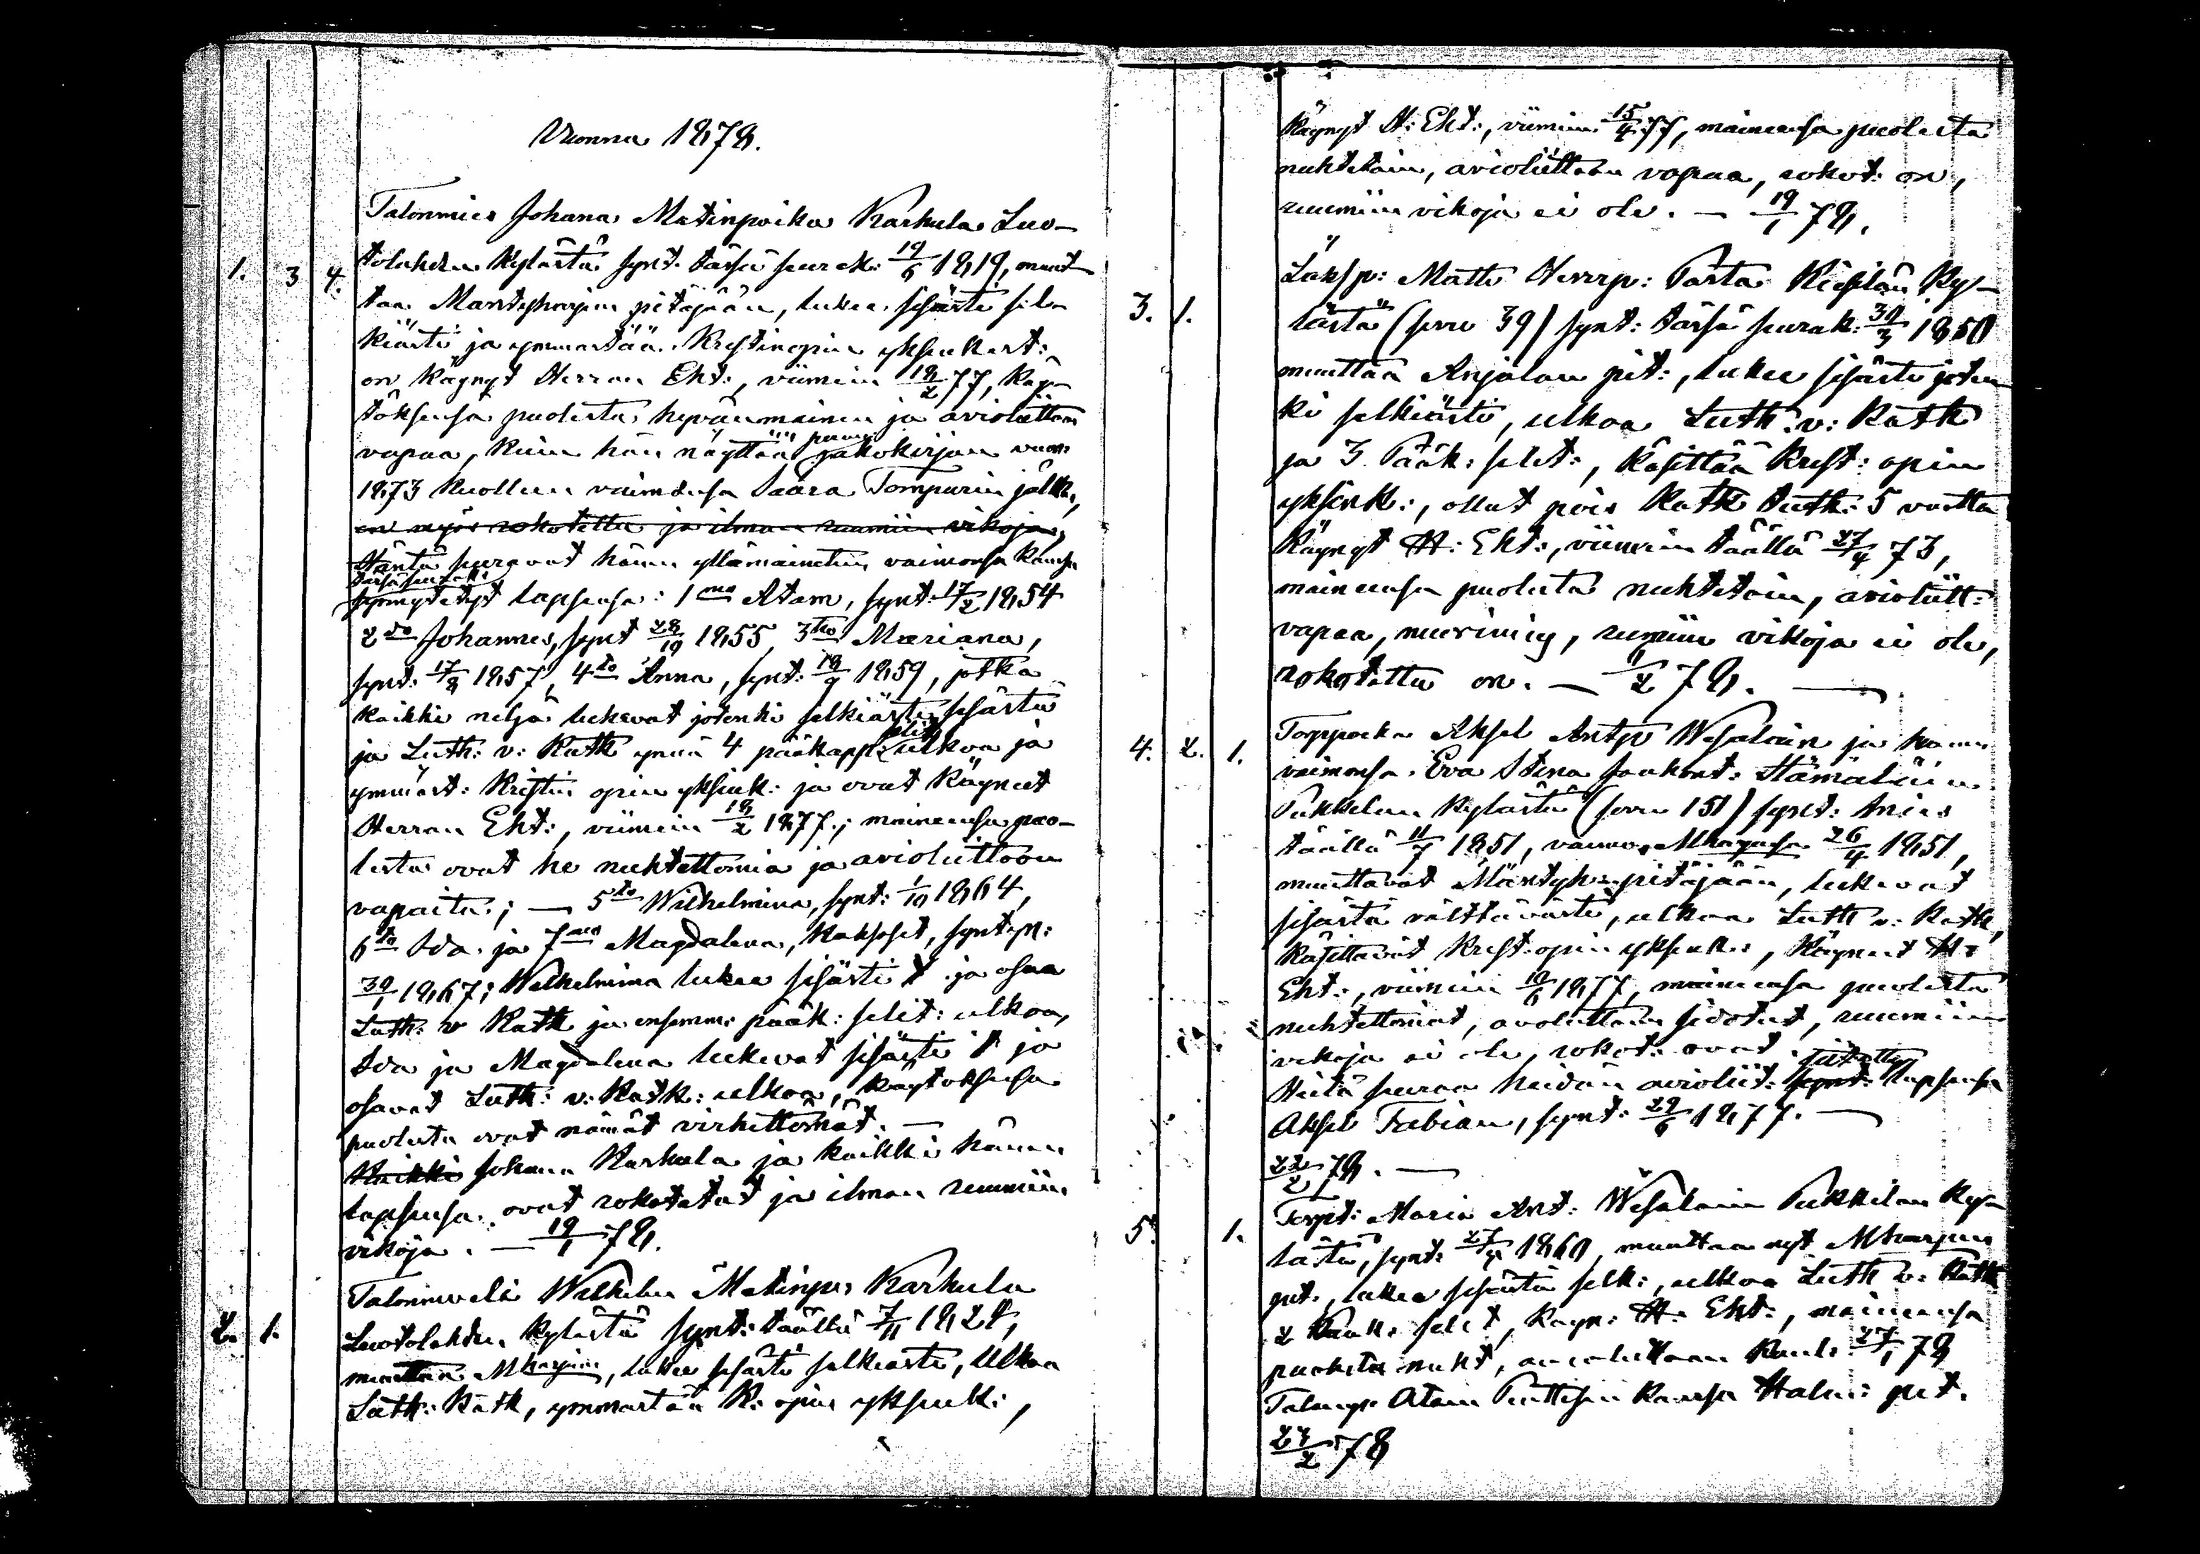 Vuonna 1878.
Talonmies Johana Matinpoika Karhula Luo-
1. 3 4. tolahden kylästä synt. tässä seurak: 19/6 1819, muut-
taa Mäntyharjun pitäjään, lukee sisästä sel-
kiästi ja ymmärtää Kristinopin yksinkert:
on käynyt Herran Eht:, viimein 18/2 77, käy-
töksensä puolesta hyvänmainen ja avioliittoon
vapaa, kuin hän näyttää perun jakokirjan vuon:
1873 kuolleen vaimonsa Saara Tompurin jälk:,
on myös rokotettu ja ilman ruumiin vikoja,
Häntä seuraavat hänen yllämainitun vaimonsa kansa
tässä seurak:
synnytetyt lapsensa: 1mo Atam, synt: 17/2 1854
2do Johannes, synt 28/10 1855, 3tio Mariana,
synt: 17/8 1857, 4to Anna, synt: 18/9 1859, jotka
kaikki neljä lukevat jotenki selkiästi sisästä
ja Luth: v: Katk ynnä 4 pääkapp: selit: ulkoa ja
ymmärt: Kristin opin yksink: ja ovat käyneet
Herran Eht:, viimein 18/2 1877; maineensa puo-
lesta ovat he nuhtettomia ja avioliittoon
vapaita; — 5to Wilhelmina, synt: 1/10 1864,
6to Ida ja 7mo Magdalena, kaksoset, syntyn:
30/1 1867; Wilhelmina lukee sisästi t ja osaa
Luth: v Katk ja ensimm: pääk: selit: ulkoa,
Ida ja Magdalena lukevat sisästi t ja
osaavat Luth: v: Katk: ulkoa, käytöksensä
puolesta ovat nämät virhettömät. —
Kaikki Johana Karhula ja kaikki hänen
lapsensa ovat rokotetut ja ilman ruumiin
vikoja. — 19/1 78.
Talonmveli Wilhelm Matinp: Karhula
2. 1. Luotolahden kylästä synt: täällä 7/11 182
muuttaa Mharjuun, lukee sisästä selkeästi, Ulkoa
Luth: Katk, ymmärtää K: opin yksink:,
käynyt H: Eht:, viimein 15/4 77, maineensa puolesta
nuhtetoin, avioliittoon vapaa, rokot: on,
ruumiin vikoja ei ole. — 19/1 78.
Läks p: Matts Herrp: Parta Kiesilän ky-
3. 1. lästä (sivu 39) synt: tässä seurak: 30/3 1850
muuttaa Anjalan pit:, lukee sisästä joten-
ki selkiästi, ulkoa Luth: v: Katk
ja 3 Pääk: selit:, käsittää Krist: opin
yksink:, ollut pois Katk tutk: 5 vuotta
käynyt H: Eht:, viimein täällä 27/4 73,
maineensa puolesta nuhtetoin, avioliitt:
vapaa, nuorimies, ruumiin vikoja ei ole,
rokotettu on. — 1/2 78. —
4. 2. 1. Torppari Aksel Antp Wesalain ja hänen
vaimonsa Eva Stina Jaakont: Hämäläin
Pukkilan kylästä (sivu 151) synt: mies
täällä 11/7 1851, vaimo Mharjussa 26/4 1851,
muuttavat Mäntyh: pitäjään, lukevat
sisästä välttävästi, ulkoa Luth v: Katk,
käsittävät Krist: opin yksink:, käyneet H:
Eht:, viimein 10/6 1877, maineensa puolesta
nuhtettomat, avioliittoon sidotut, ruumiin
vikoja ei ole, rokot: ovat
Heitä seuraa heidän avioliit: synt: lapsensa
Aksel Fabian, synt: 29/6 1877. —
22/2 78. —
5. 1. Torpt: Maria Ant: Wesalain Pukkilan ky-
lästä, synt: 27/4 1860, muuttaa nyt Mharjun
pit., lukee sisästä selk:, ulkoa Luth v: Katk
2 Pääk: selit, käyn: H: Eht:, maineensa
puolesta nuht, avioliittoon kuul: 27/1 78
Talonp: Atam Penttisin kansa Halm: pit.
27/2 78